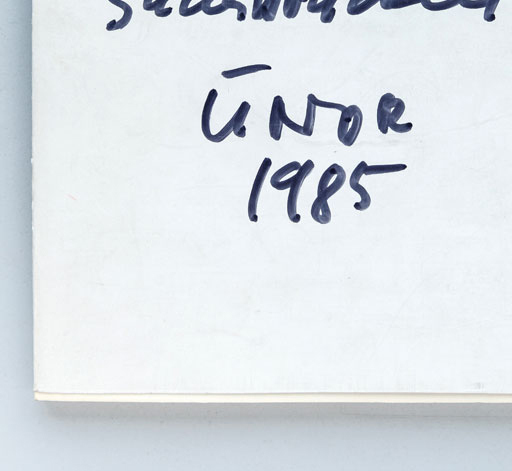 ÚNOR
1985